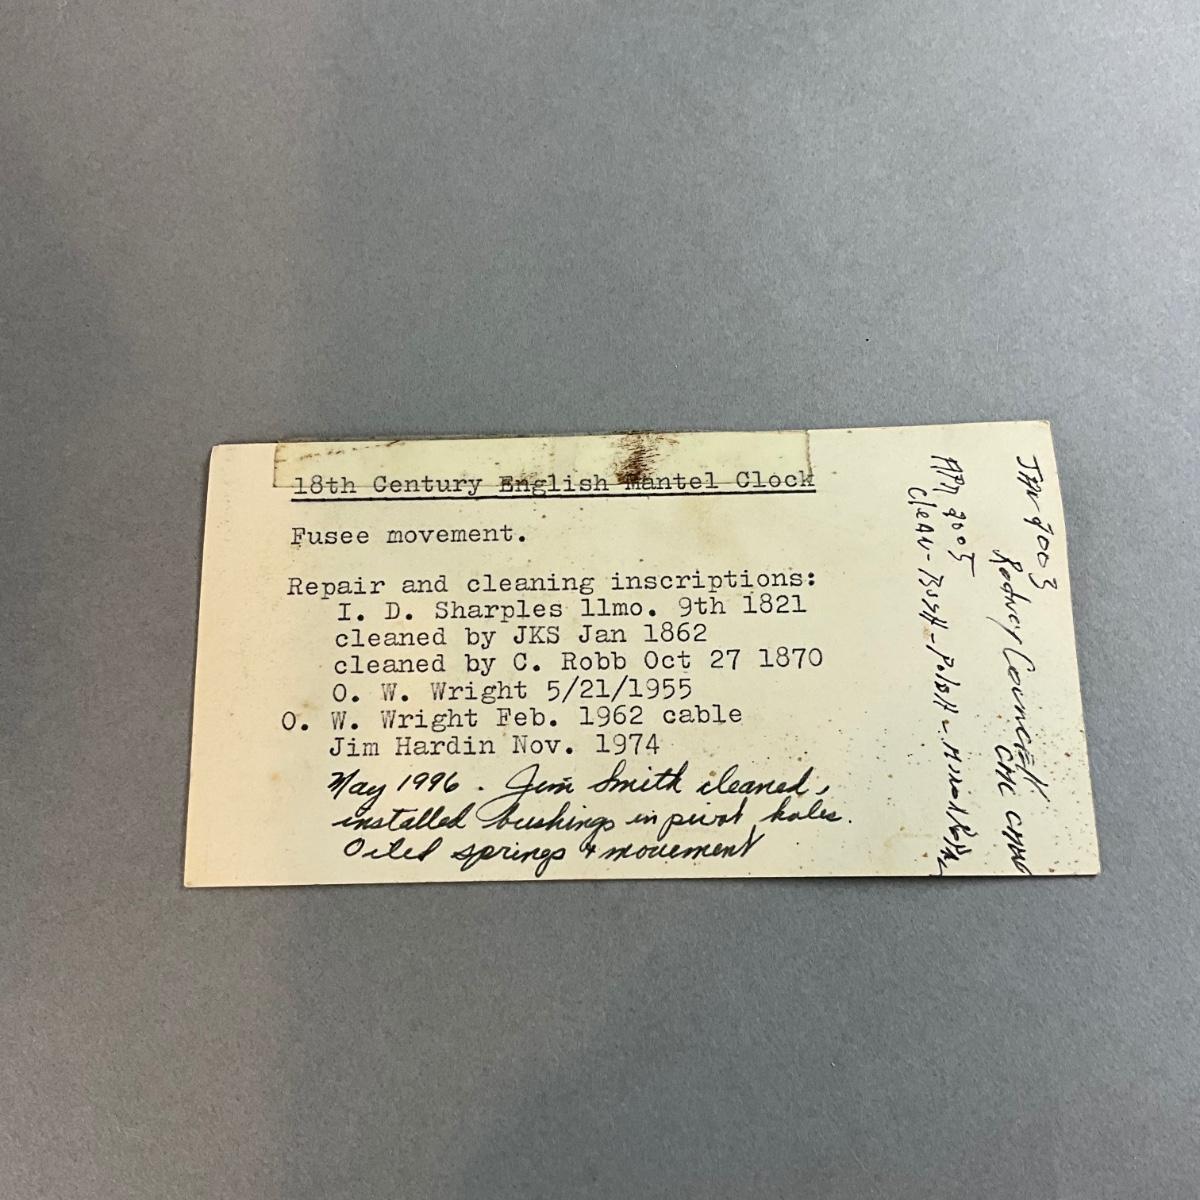 18th Century English Mantel Clock
Fusee movement.
Repair and cleaning inscriptions:
I. D. Sharples 11mo. 9th 1821
cleaned by JKS Jan 1862
cleaned by C. Robb Oct 27 1870
O. W. Wright 5/21/1955
O. W. Wright Feb. 1962 cable
Jim Hardin Nov. 1974
May 1996. Jim Smith cleaned,
installed bushings in pivot holes.
Oiled springs & movement
JAN 2003
Rodney Councick
CMC CMW
APR 2005
CleAN - BusH - PolisH -